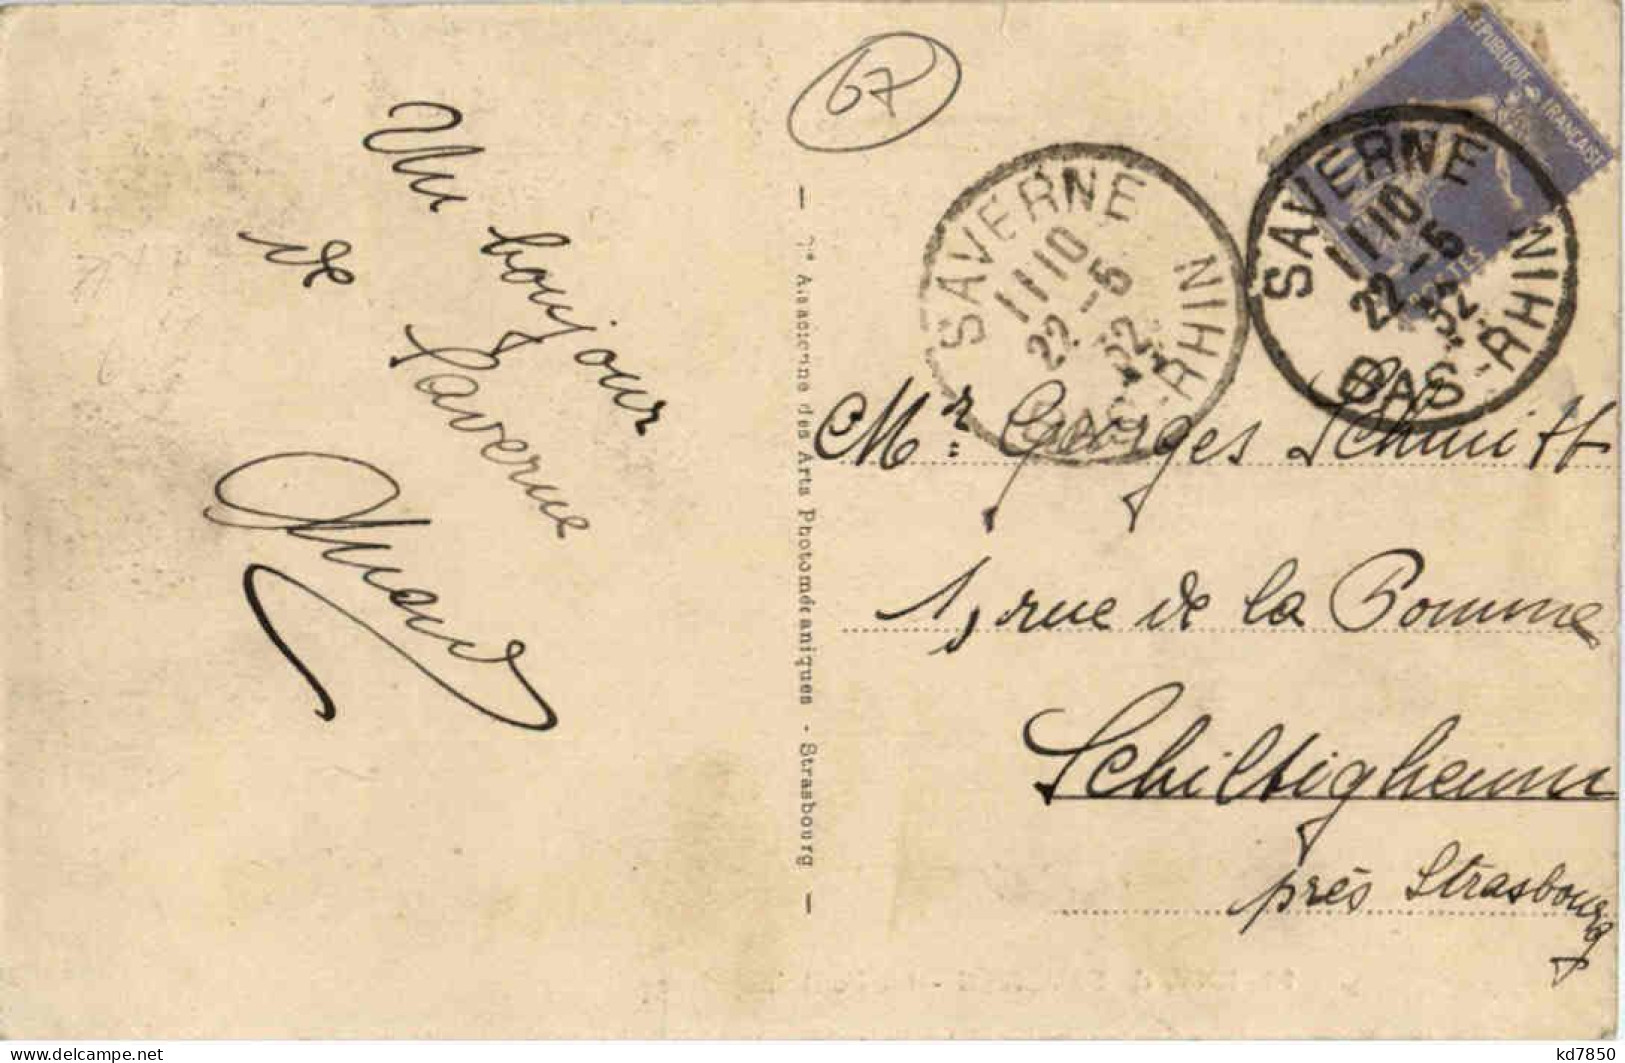 Un bonjour
de Saverne
67
Cie Alsacienne des Arts Photomécaniques - Strasbourg
SAVERNE
1110
22-5
32
BAS-RHIN
REPUBLIQUE FRANÇAISE
POSTES
SAVERNE
1110
22-5
32
BAS-RHIN
Mr. Georges Schmitt
1, rue de la Pomme
Schiltigheim
près Strasbourg
kd7850